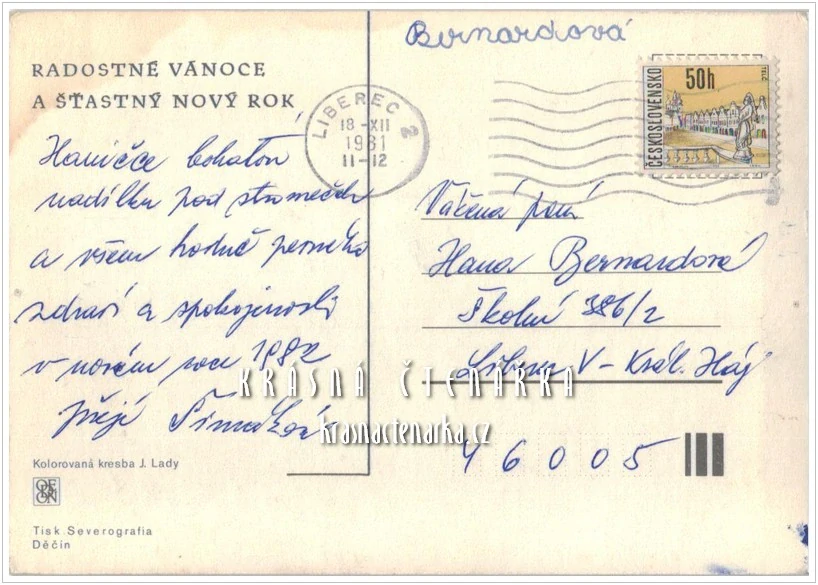 Bernardová
RADOSTNÉ VÁNOCE
A ŠŤASTNÝ NOVÝ ROK
LIBEREC 2
18-XII
1981
11-12
ČESKOSLOVENSKO
50h
TELČ
Haničce bohatou
nadílku pod stromeček
a všem hodně pevného
zdraví a spokojenosti
v novém roce 1982
přejí
Vážená paní
Hana Bernardová
Školní 386/2
Liberec V - Král. Háj
46005
KRÁSNÁ ČTENÁRKA
krasnactenarka.cz
Kolorovaná kresba J. Lady
ORBIS
Tisk Severografia
Děčín